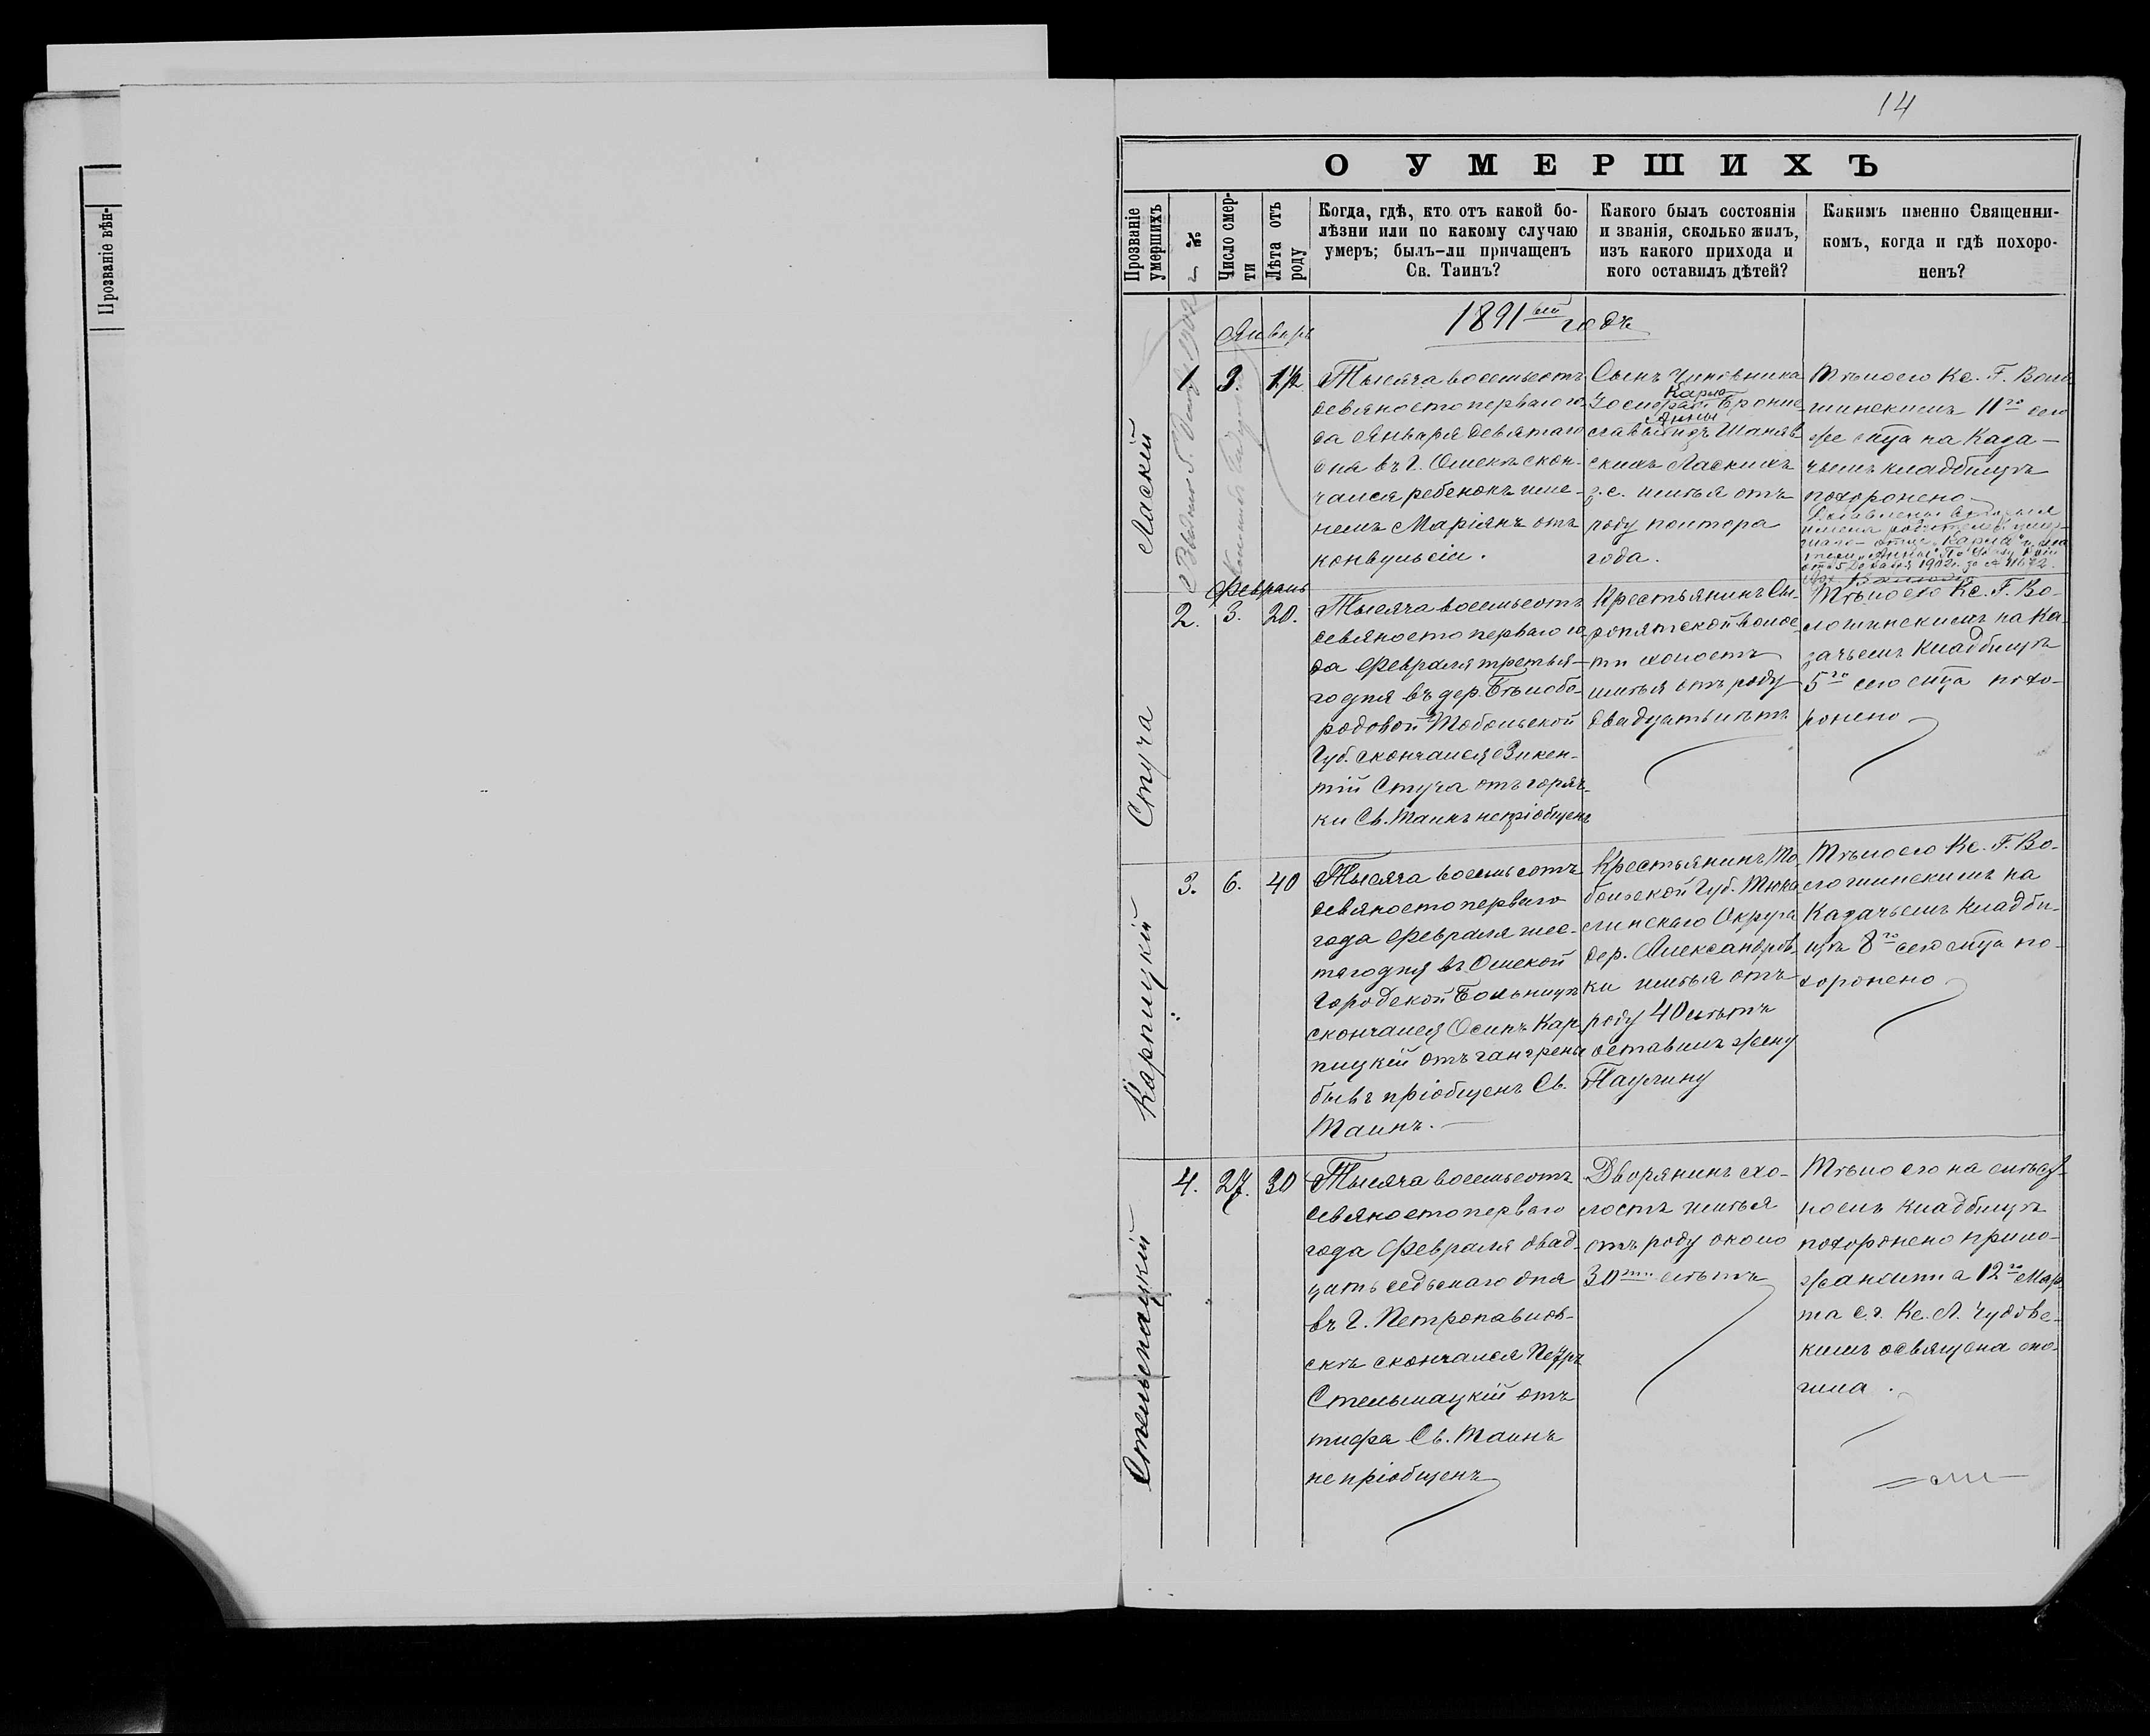 14
О УМЕРШИХЪ
Прозваніе вѣн-
Прозваніе умершихъ
№
Число смер-
ти
Лѣта отъ
роду
Когда, гдѣ, кто отъ какой бо-
лѣзни или по какому случаю
умеръ; былъ-ли причащенъ
Св. Таинъ?
Какого былъ состоянія
и званія, сколько жилъ,
изъ какого прихода и
кого оставилъ дѣтей?
Какимъ именно Священни-
комъ, когда и гдѣ похоро-
ненъ?
1891ый годъ
Январь
Ласкій
1
9.
1 1/2
Тысяча восемьсотъ
девяносто перваго го-
да Января девятаго
дня въ г. Омскѣ скон-
чался ребенокъ име-
немъ Маріянъ отъ
конвульсіи.
Сынъ Чиновника
Карла
Іосифа и Брони-
Анны
славы изъ Шаняв-
скихъ Ласкихъ
з.с. имѣя отъ
роду полтора
года.
Тѣло его Кс. Г. Воло-
шинскимъ 11го сего
же м-ца на Каза-
чьемъ кладбищѣ
похоронено
Февраль
Стуча
2.
3.
20.
Тысяча восемьсотъ
девяносто перваго го-
да Февраля третья-
го дня въ дер. Бѣлобо-
родовой Тобольской
Губ. скончался Викен-
тій Стуча отъ горяч-
ки Св. Таинъ непріобщенъ
Крестьянинъ Сы-
ропятской волос-
ти холостъ
имѣя отъ роду
двадцать лѣтъ
Тѣло его Кс. Г. Во-
лошинскимъ на Ка-
зачьемъ Кладбищѣ
5го сего м-ца похо-
ронено
Карпицкій
3.
6.
40
Тысяча восемьсотъ
девяносто перваго
года Февраля шес-
таго дня въ Омской
Городской Больницѣ
скончался Осипъ Кар-
пицкій отъ гангрены
бывъ пріобщенъ Св.
Таинъ.
Крестьянинъ То-
больской Губ. Тюка-
линскаго Округа
дер. Александров-
ки имѣя отъ
роду 40 лѣтъ
оставилъ жену
Паулину
Тѣло его Кс. Г. Во-
лошинскимъ на
Казачьемъ кладби-
щѣ 8го сего м-ца по-
хоронено
Стельмацкій
4.
27.
30
Тысяча восемьсотъ
девяносто перваго
года Февраля двад-
цать седьмаго дня
въ г. Петропавлов-
скѣ скончался Петръ
Стельмацкій отъ
тифа Св. Таинъ
не пріобщенъ
Дворянинъ хо-
лостъ имѣя
отъ роду около
30ти лѣтъ
Тѣло его на мѣст-
номъ кладбищѣ
похоронено прихо-
жанами а 12го Мар-
та с.г. Кс. Л. Чудовс-
кимъ освящена мо-
гила.